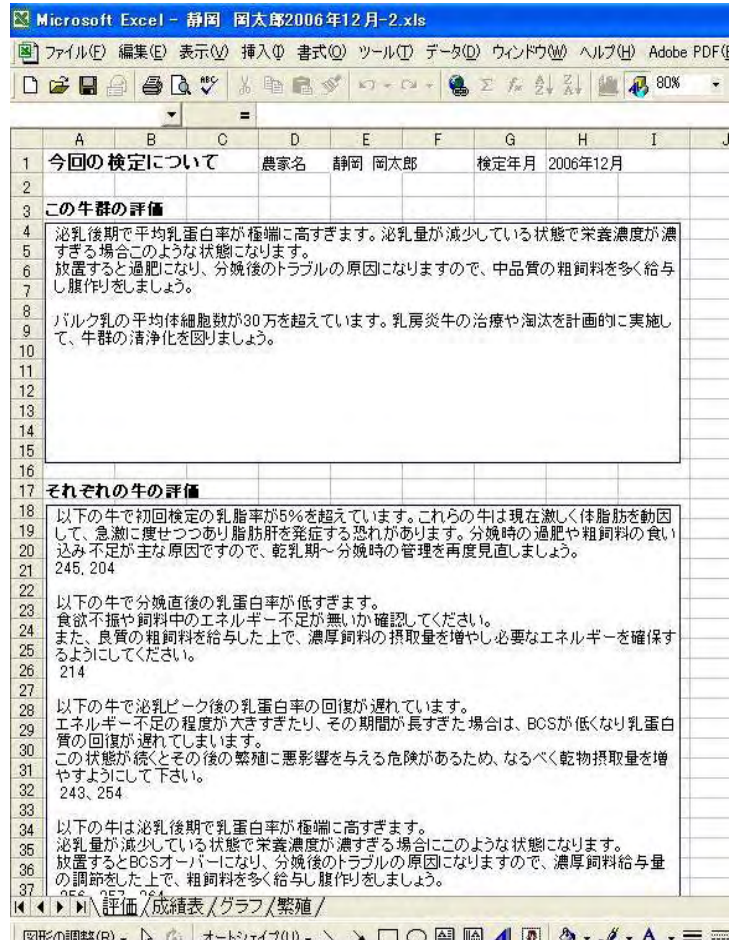 Microsoft Excel - 静岡 岡太郎2006年12月-2.xls
ファイル(F) 編集(E) 表示(V) 挿入(I) 書式(O) ツール(T) データ(D) ウィンドウ(W) ヘルプ(H) Adobe PDF(
80%
=
A B C D E F G H I J
1 今回の検定について 農家名 静岡 岡太郎 検定年月 2006年12月
2
3 この牛群の評価
4 泌乳後期で平均乳蛋白率が極端に高すぎます。泌乳量が減少している状態で栄養濃度が濃
5 すぎる場合このような状態になります。
6 放置すると過肥になり、分娩後のトラブルの原因になりますので、中品質の粗飼料を多く給与
7 し腹作りをしましょう。
8
9 バルク乳の平均体細胞数が30万を超えています。乳房炎牛の治療や淘汰を計画的に実施し
10 て、牛群の清浄化を図りましょう。
11
12
13
14
15
16
17 それぞれの牛の評価
18 以下の牛で初回検定の乳脂率が5%を超えています。これらの牛は現在激しく体脂肪を動因
19 して、急激に痩せつつあり脂肪肝を発症する恐れがあります。分娩時の過肥や粗飼料の食い
20 込み不足が主な原因ですので、乾乳期～分娩時の管理を再度見直しましょう。
21 245, 204
22
23 以下の牛で分娩直後の乳蛋白率が低すぎます。
食欲不振や飼料中のエネルギー不足が無いか確認してください。
24 また、良質の粗飼料を給与した上で、濃厚飼料の摂取量を増やし必要なエネルギーを確保す
25 るようにしてください。
26 214
27
28 以下の牛で泌乳ピーク後の乳蛋白率の回復が遅れています。
29 エネルギー不足の程度が大きすぎたり、その期間が長すぎた場合は、BCSが低くなり乳蛋白
30 質の回復が遅れてしまいます。
この状態が続くとその後の繁殖に悪影響を与える危険があるため、なるべく乾物摂取量を増
31 やすようにして下さい。
32 243、254
33
34 以下の牛は泌乳後期で乳蛋白率が極端に高すぎます。
35 泌乳量が減少している状態で栄養濃度が濃すぎる場合にこのような状態になります。
36 放置するとBCSオーバーになり、分娩後のトラブルの原因になりますので、濃厚飼料給与量
37 の調節をした上で、粗飼料を多く給与し腹作りをしましょう。
評価 成績表 グラフ 繁殖
図形の調整(R) オートシェイプ(U)